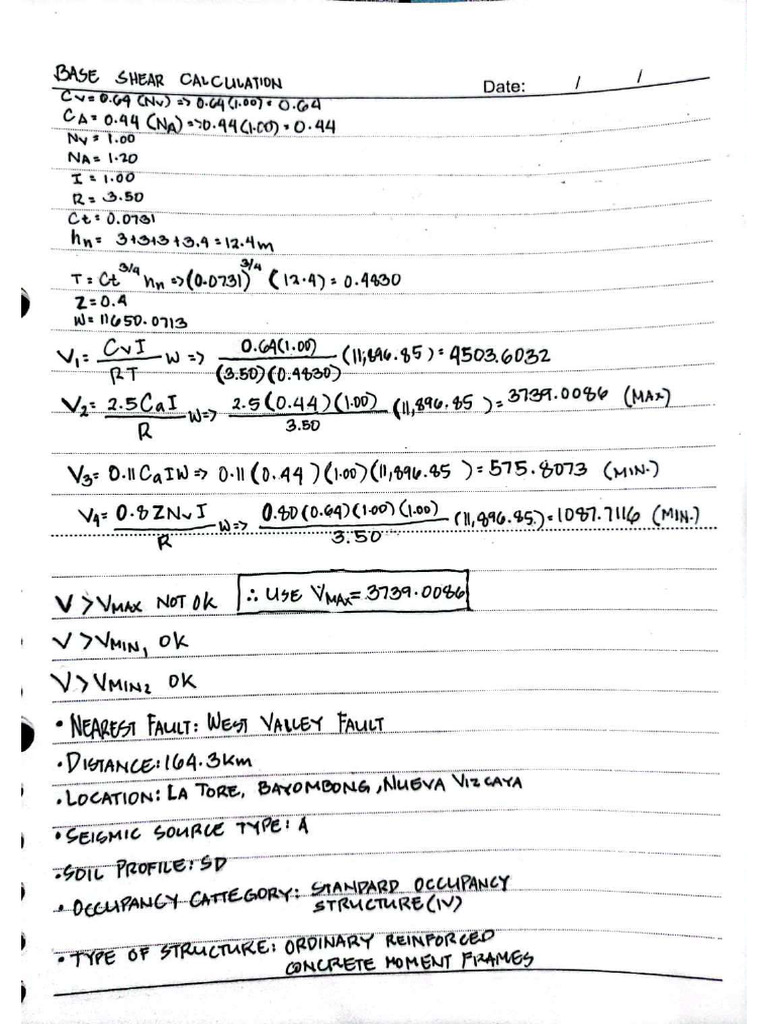 BASE SHEAR CALCULATION
Date: / /
Cv = 0.64 (Nv) => 0.64 (1.00) = 0.64
CA = 0.44 (NA) => 0.44 (1.00) = 0.44
Nv = 1.00
NA = 1.20
I = 1.00
R = 3.50
Ct = 0.0731
hn = 3+3+3+3.4 = 12.4m
T = Ct^3/4 hn => (0.0731)^3/4 (12.4) = 0.4830
Z = 0.4
W = 11650.0713
V1 = CvI/RT W => 0.64(1.00)/(3.50)(0.4830) (11,896.85) = 4503.6032
V2 = 2.5CaI/R W => 2.5(0.44)(1.00)/3.50 (11,896.85) = 3739.0086 (MAX)
V3 = 0.11CaIW => 0.11(0.44)(1.00)(11,896.85) = 575.8073 (MIN.)
V4 = 0.8ZNvI/R W => 0.80(0.64)(1.00)(1.00)/3.50 (11,896.85) = 1087.7116 (MIN.)
V > VMAX NOT OK ∴ USE VMAX = 3739.0086
V > VMIN1 OK
V > VMIN2 OK
• NEAREST FAULT: WEST VALLEY FAULT
• DISTANCE: 164.3km
• LOCATION: LA TORE, BAYOMBONG, NUEVA VIZCAYA
• SEISMIC SOURCE TYPE: A
• SOIL PROFILE: SD
• OCCUPANCY CATTEGORY: STANDARD OCCUPANCY
STRUCTURE (IV)
• TYPE OF STRUCTURE: ORDINARY REINFORCED
CONCRETE MOMENT FRAMES